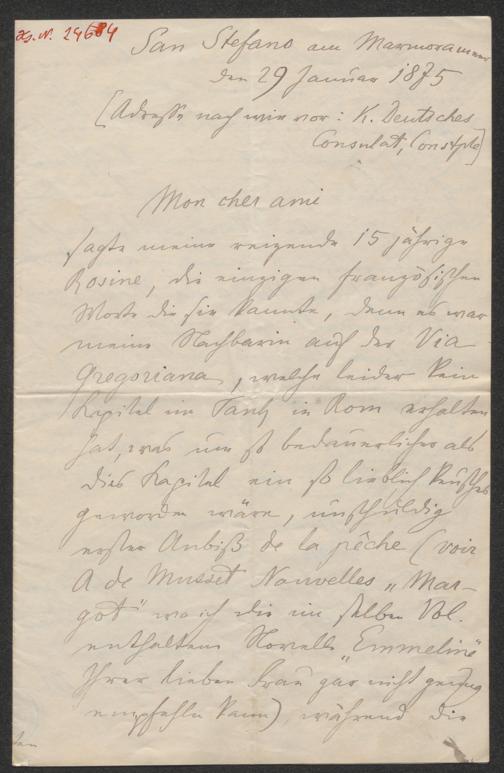 H.N. 24684
San Stefano am Marmorameer
den 29 Januar 1875
[Adresse nach wie vor: K. Deutsches
Consulat, Constple]
Mon cher ami
sagte meine reizende 15 jährige
Rosine, die einzigen französischen
Worte die sie kannte, denn es war
meine Nachbarin auf der Via
Gregoriana, welche leider kein
Kapitel im Tanz in Rom erhalten
hat, was um so bedauerlicher als
dies Kapitel ein so lieblich keusches
geworden wäre, unschuldig
erster Anbiß de la pêche (voir
A de Musset Nouvelles „Mar-
got" wo ich die im selben Vol.
enthaltene Novelle „Emmeline"
Ihrer lieben Frau gar nicht genug
empfehlen kann), während die